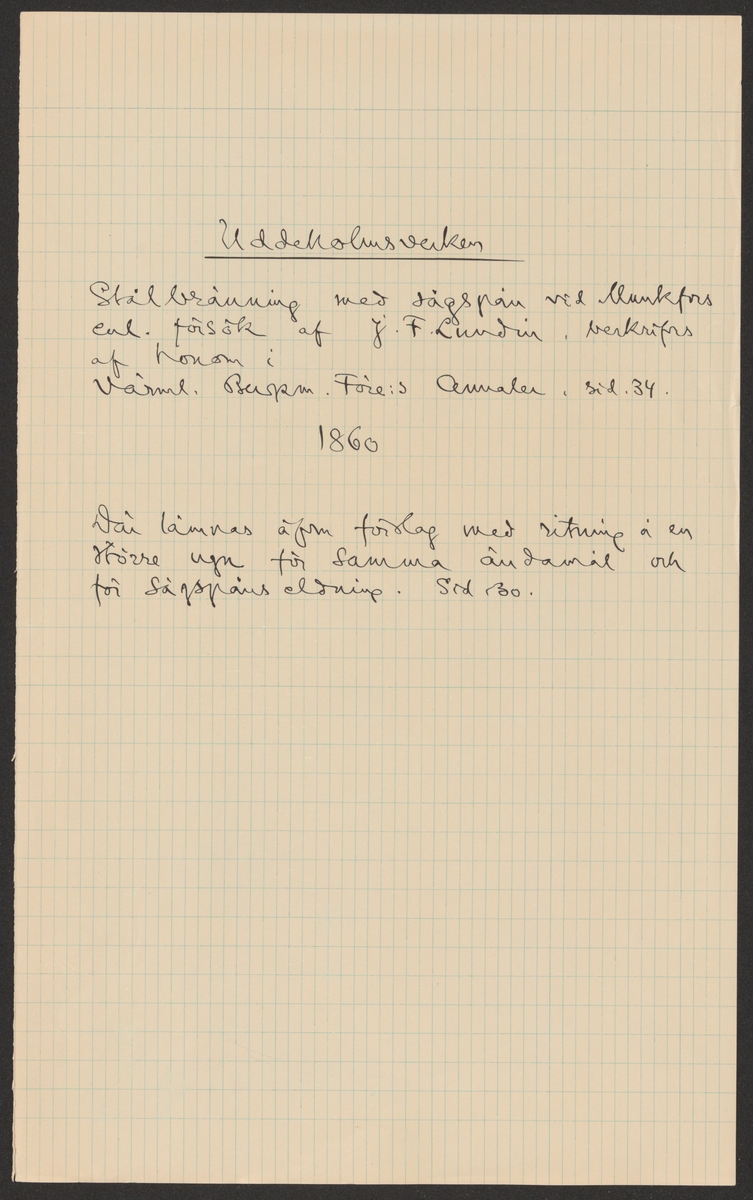 Uddeholmsverken
Stålbränning med sågspån vid Munkfors
enl. försök af J. F. Lundin, beskrifves
af honom i
Värml. Bergm. Före:s Annaler, sid. 34.
1860
Där lämnas äfven förslag med ritning å en
större ugn för samma ändamål och
för sågspåns eldning. Sid 30.